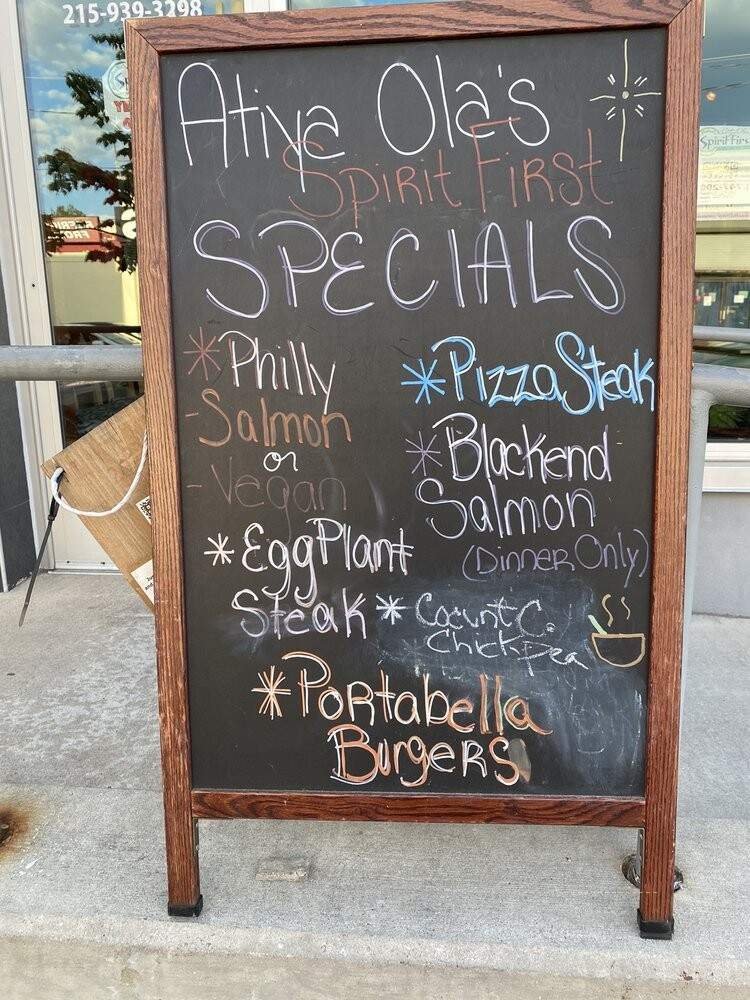 215-939-3298
Atiya Ola's
Spirit First
SPECIALS
*Philly
-Salmon
or
-Vegan
*EggPlant
Steak
*Pizza Steak
*Blackend
Salmon
(Dinner Only)
*Cocunt C.
Chickpea
*Portabella
Burgers
Spirit First